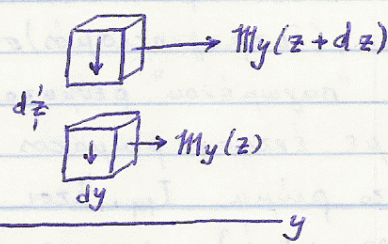 𝕄y(z + dz)
dz
𝕄y(z)
dy
y